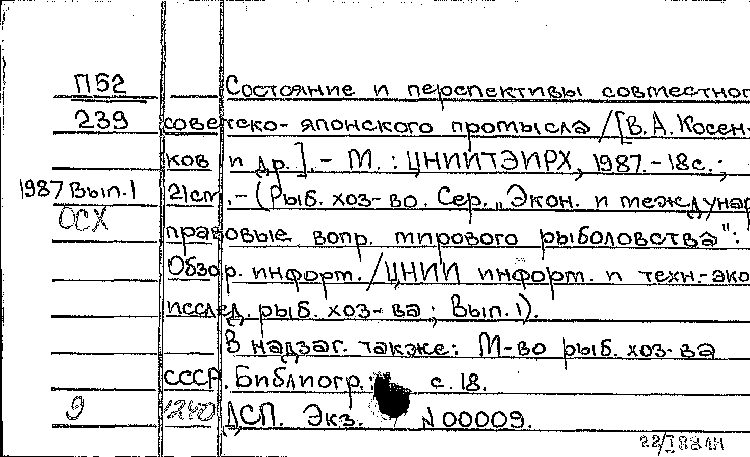 П52 Состояние и перспективы совместног
239 советско-японского промысла /[В.А. Косен-
ков и др.].- М. : ЦНИИТЭИРХ, 1987.-18с.;
1987 Вып.1 21см.-(Рыб. хоз-во. Сер. „Экон. и междунар
ОСХ
правовые вопр. мирового рыболовства":
Обзор. информ./ЦНИИ информ. и техн.-эко
исслед. рыб. хоз-ва ; Вып.1).
В надзаг. также: М-во рыб. хоз-ва
СССР. Библиогр.: с.18.
9 1240 ДСП. Экз. N00009.